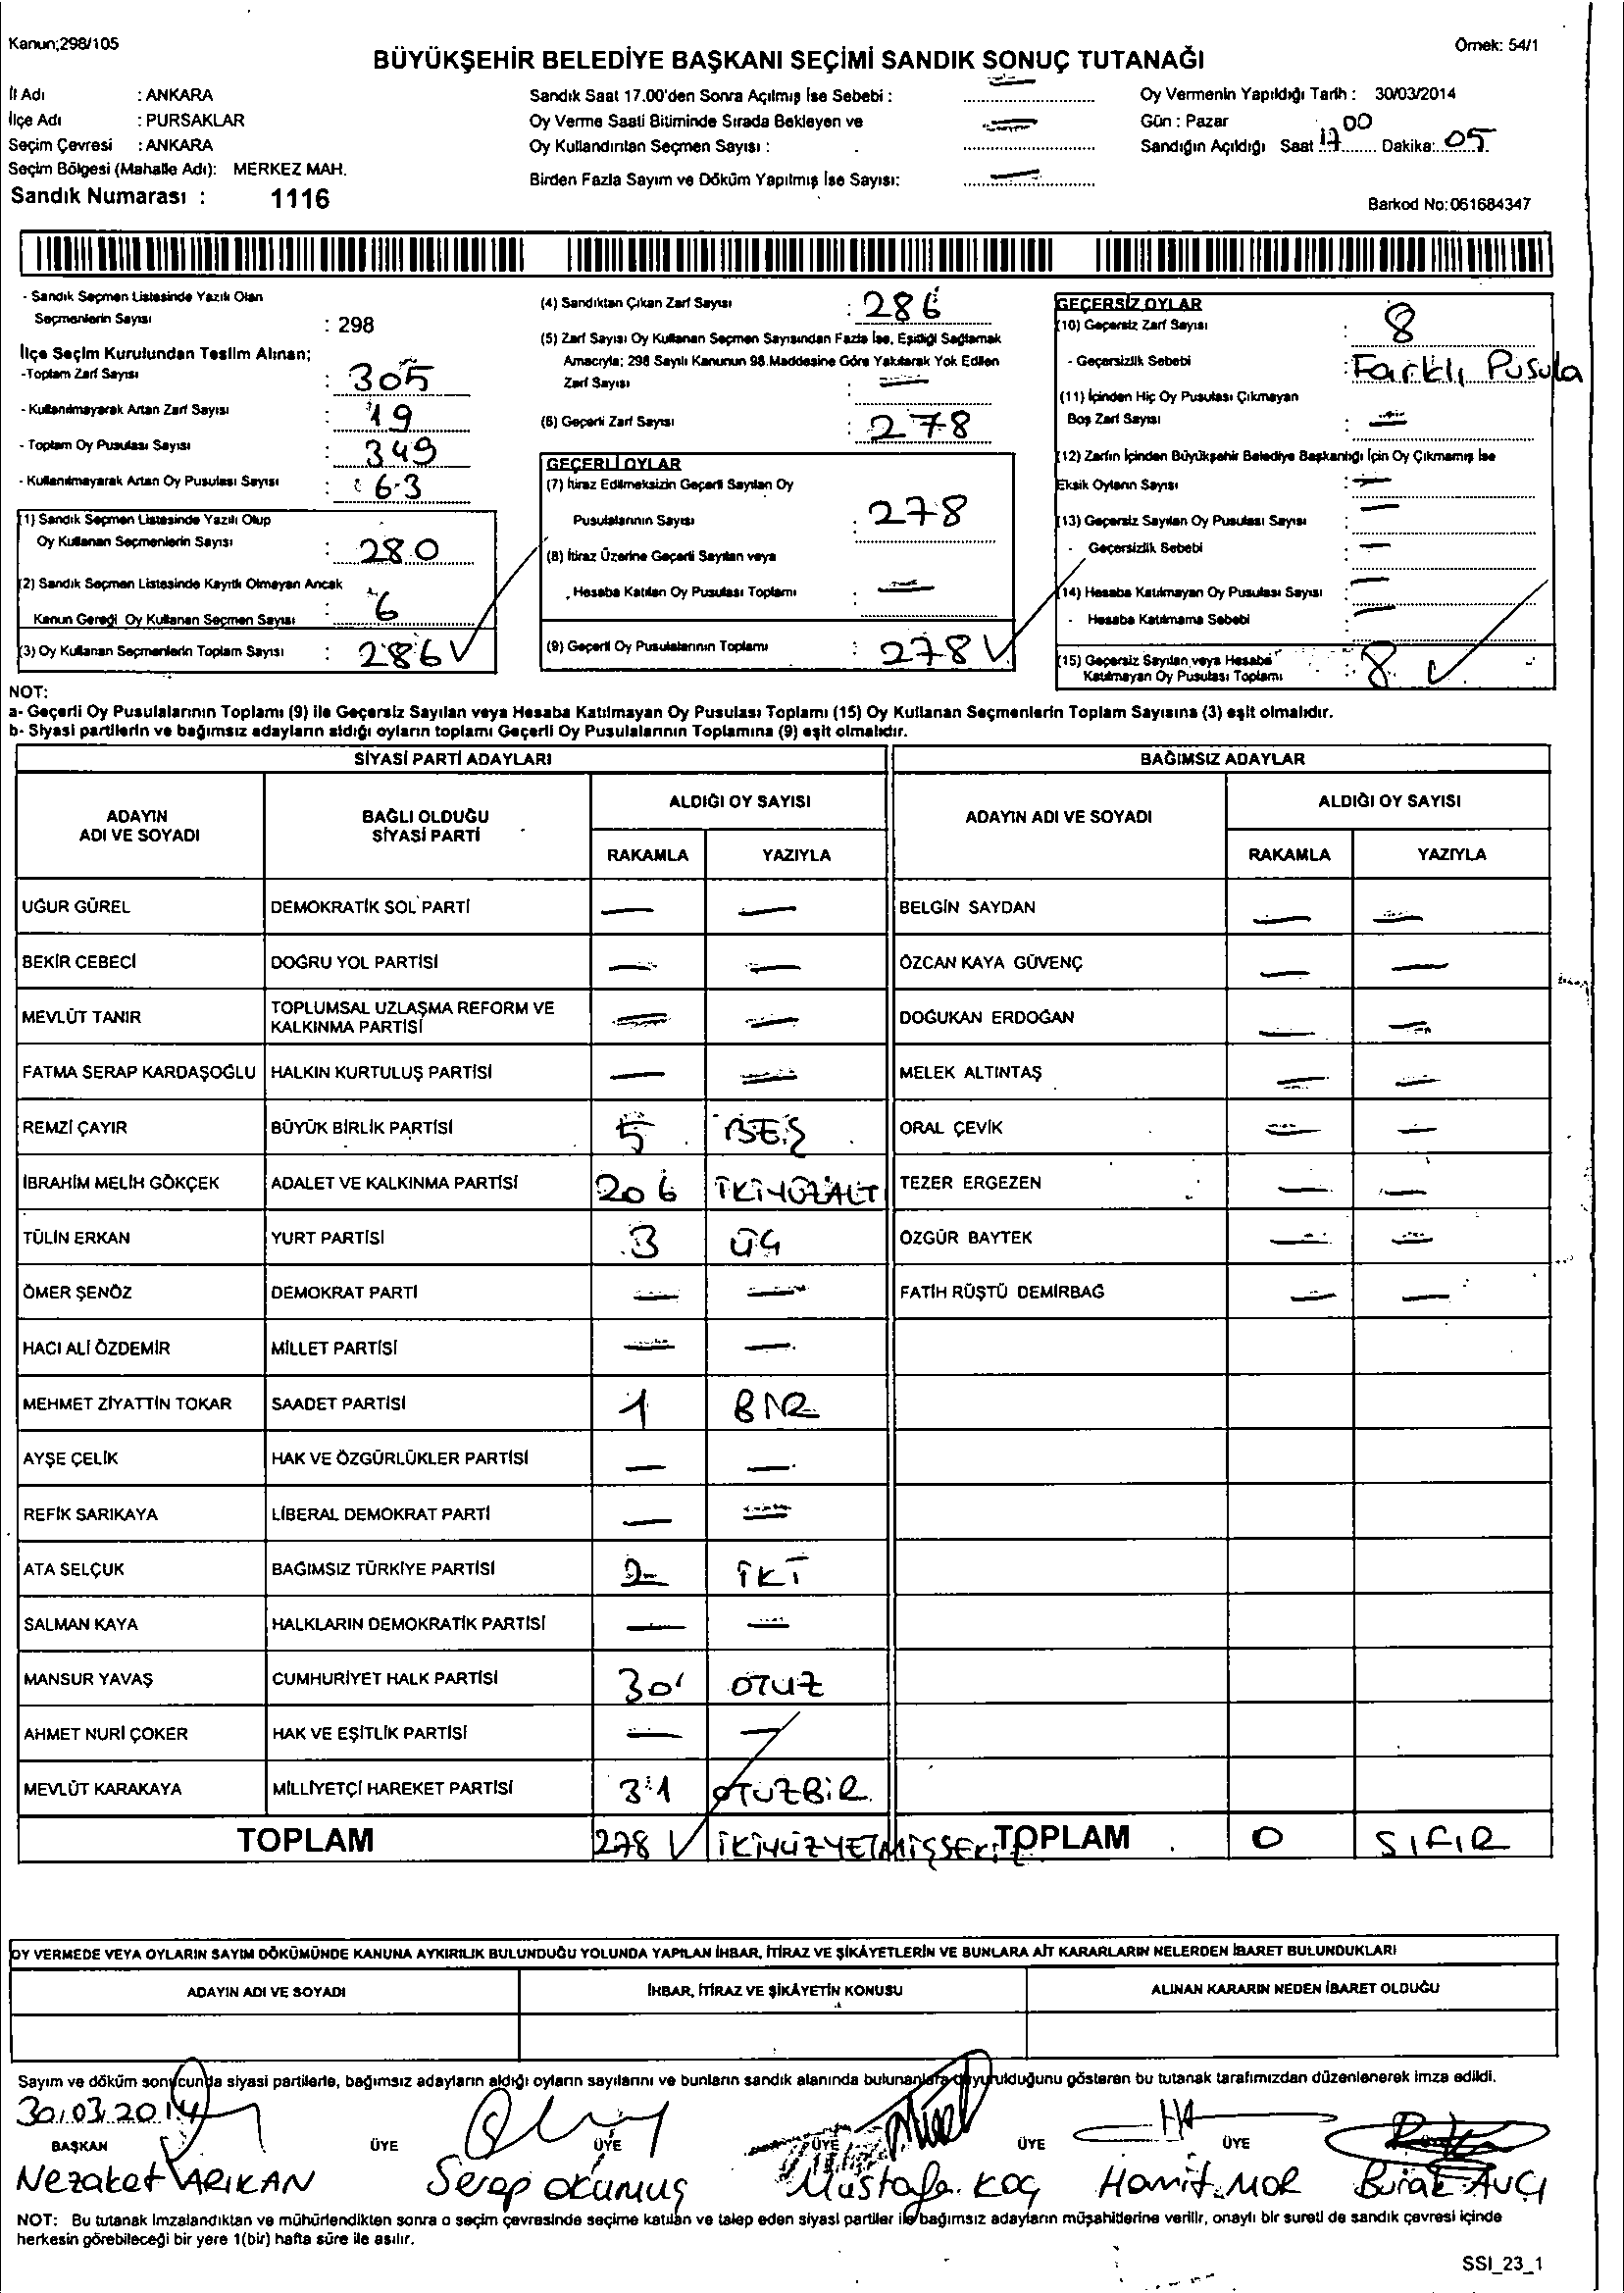 Kanun;298/105
Örnek: 54/1
BÜYÜKŞEHİR BELEDİYE BAŞKANI SEÇİMİ SANDIK SONUÇ TUTANAĞI
İl Adı : ANKARA
İlçe Adı : PURSAKLAR
Seçim Çevresi : ANKARA
Seçim Bölgesi (Mahalle Adı): MERKEZ MAH.
Sandık Numarası : 1116
Sandık Saat 17.00'den Sonra Açılmış İse Sebebi : —
Oy Verme Saati Bitiminde Sırada Bekleyen ve
Oy Kullandırılan Seçmen Sayısı : —
Birden Fazla Sayım ve Döküm Yapılmış İse Sayısı: —
Oy Vermenin Yapıldığı Tarih : 30/03/2014
Gün : Pazar
Sandığın Açıldığı Saat 17 00 Dakika: 05
Barkod No:061684347
- Sandık Seçmen Listesinde Yazılı Olan
Seçmenlerin Sayısı : 298
İlçe Seçim Kurulundan Teslim Alınan;
-Toplam Zarf Sayısı : 305
- Kullanılmayarak Artan Zarf Sayısı : 19
- Toplam Oy Pusulası Sayısı : 349
- Kullanılmayarak Artan Oy Pusulası Sayısı : 63
(1) Sandık Seçmen Listesinde Yazılı Olup
Oy Kullanan Seçmenlerin Sayısı : 280
(2) Sandık Seçmen Listesinde Kayıtlı Olmayan Ancak
Kanun Gereği Oy Kullanan Seçmen Sayısı : 6
(3) Oy Kullanan Seçmenlerin Toplam Sayısı : 286
(4) Sandıktan Çıkan Zarf Sayısı : 286
(5) Zarf Sayısı Oy Kullanan Seçmen Sayısından Fazla İse, Eşitliği Sağlamak
Amacıyla; 298 Sayılı Kanunun 98.Maddesine Göre Yakılarak Yok Edilen
Zarf Sayısı : —
(6) Geçerli Zarf Sayısı : 278
GEÇERLİ OYLAR
(7) İtiraz Edilmeksizin Geçerli Sayılan Oy
Pusulalarının Sayısı : 278
(8) İtiraz Üzerine Geçerli Sayılan veya
Hesaba Katılan Oy Pusulası Toplamı : —
(9) Geçerli Oy Pusulalarının Toplamı : 278
GEÇERSİZ OYLAR
(10) Geçersiz Zarf Sayısı : 8
- Geçersizlik Sebebi : Farklı Pusula
(11) İçinden Hiç Oy Pusulası Çıkmayan
Boş Zarf Sayısı : —
(12) Zarfın İçinden Büyükşehir Belediye Başkanlığı İçin Oy Çıkmamış İse
Eksik Oyların Sayısı : —
(13) Geçersiz Sayılan Oy Pusulası Sayısı —
- Geçersizlik Sebebi : —
(14) Hesaba Katılmayan Oy Pusulası Sayısı —
- Hesaba Katılmama Sebebi —
(15) Geçersiz Sayılan veya Hesaba
Katılmayan Oy Pusulası Toplamı : 8
NOT:
a- Geçerli Oy Pusulalarının Toplamı (9) ile Geçersiz Sayılan veya Hesaba Katılmayan Oy Pusulası Toplamı (15) Oy Kullanan Seçmenlerin Toplam Sayısına (3) eşit olmalıdır.
b- Siyasi partilerin ve bağımsız adayların aldığı oyların toplamı Geçerli Oy Pusulalarının Toplamına (9) eşit olmalıdır.
SİYASİ PARTİ ADAYLARI
BAĞIMSIZ ADAYLAR
ADAYIN
ADI VE SOYADI
BAĞLI OLDUĞU
SİYASİ PARTİ
ALDIĞI OY SAYISI
RAKAMLA YAZIYLA
ADAYIN ADI VE SOYADI
ALDIĞI OY SAYISI
RAKAMLA YAZIYLA
UĞUR GÜREL DEMOKRATİK SOL PARTİ — — BELGİN SAYDAN — —
BEKİR CEBECİ DOĞRU YOL PARTİSİ — — ÖZCAN KAYA GÜVENÇ — —
MEVLÜT TANIR TOPLUMSAL UZLAŞMA REFORM VE KALKINMA PARTİSİ — — DOĞUKAN ERDOĞAN — —
FATMA SERAP KARDAŞOĞLU HALKIN KURTULUŞ PARTİSİ — — MELEK ALTINTAŞ — —
REMZİ ÇAYIR BÜYÜK BİRLİK PARTİSİ 5 BEŞ ORAL ÇEVİK — —
İBRAHİM MELİH GÖKÇEK ADALET VE KALKINMA PARTİSİ 206 İKİYÜZALTI TEZER ERGEZEN — —
TÜLİN ERKAN YURT PARTİSİ 3 ÜÇ ÖZGÜR BAYTEK — —
ÖMER ŞENÖZ DEMOKRAT PARTİ — — FATİH RÜŞTÜ DEMİRBAĞ — —
HACI ALİ ÖZDEMİR MİLLET PARTİSİ — —
MEHMET ZİYATTİN TOKAR SAADET PARTİSİ 1 BİR
AYŞE ÇELİK HAK VE ÖZGÜRLÜKLER PARTİSİ — —
REFİK SARIKAYA LİBERAL DEMOKRAT PARTİ — —
ATA SELÇUK BAĞIMSIZ TÜRKİYE PARTİSİ 2 İKİ
SALMAN KAYA HALKLARIN DEMOKRATİK PARTİSİ — —
MANSUR YAVAŞ CUMHURİYET HALK PARTİSİ 30 OTUZ
AHMET NURİ ÇOKER HAK VE EŞİTLİK PARTİSİ — —
MEVLÜT KARAKAYA MİLLİYETÇİ HAREKET PARTİSİ 31 OTUZBİR
TOPLAM 278 İKİYÜZYETMİŞSEKİZ TOPLAM 0 SIFIR
OY VERMEDE VEYA OYLARIN SAYIM DÖKÜMÜNDE KANUNA AYKIRILIK BULUNDUĞU YOLUNDA YAPILAN İHBAR, İTİRAZ VE ŞİKÂYETLERİN VE BUNLARA AİT KARARLARIN NELERDEN İBARET BULUNDUKLARI
ADAYIN ADI VE SOYADI İHBAR, İTİRAZ VE ŞİKÂYETİN KONUSU ALINAN KARARIN NEDEN İBARET OLDUĞU
Sayım ve döküm sonucunda siyasi partilerle, bağımsız adayların aldığı oyların sayılarını ve bunların sandık alanında bulunanlara duyurulduğunu gösteren bu tutanak tarafımızdan düzenlenerek imza edildi.
30.03.2014
BAŞKAN ÜYE ÜYE ÜYE ÜYE ÜYE
Nezaket ARIKAN Serap okumuş Mustafa KOÇ Hamit MOR Burak AVCI
NOT: Bu tutanak imzalandıktan ve mühürlendikten sonra o seçim çevresinde seçime katılan ve talep eden siyasi partiler ile bağımsız adayların müşahitlerine verilir, onaylı bir sureti de sandık çevresi içinde
herkesin görebileceği bir yere 1(bir) hafta süre ile asılır.
SSI_23_1